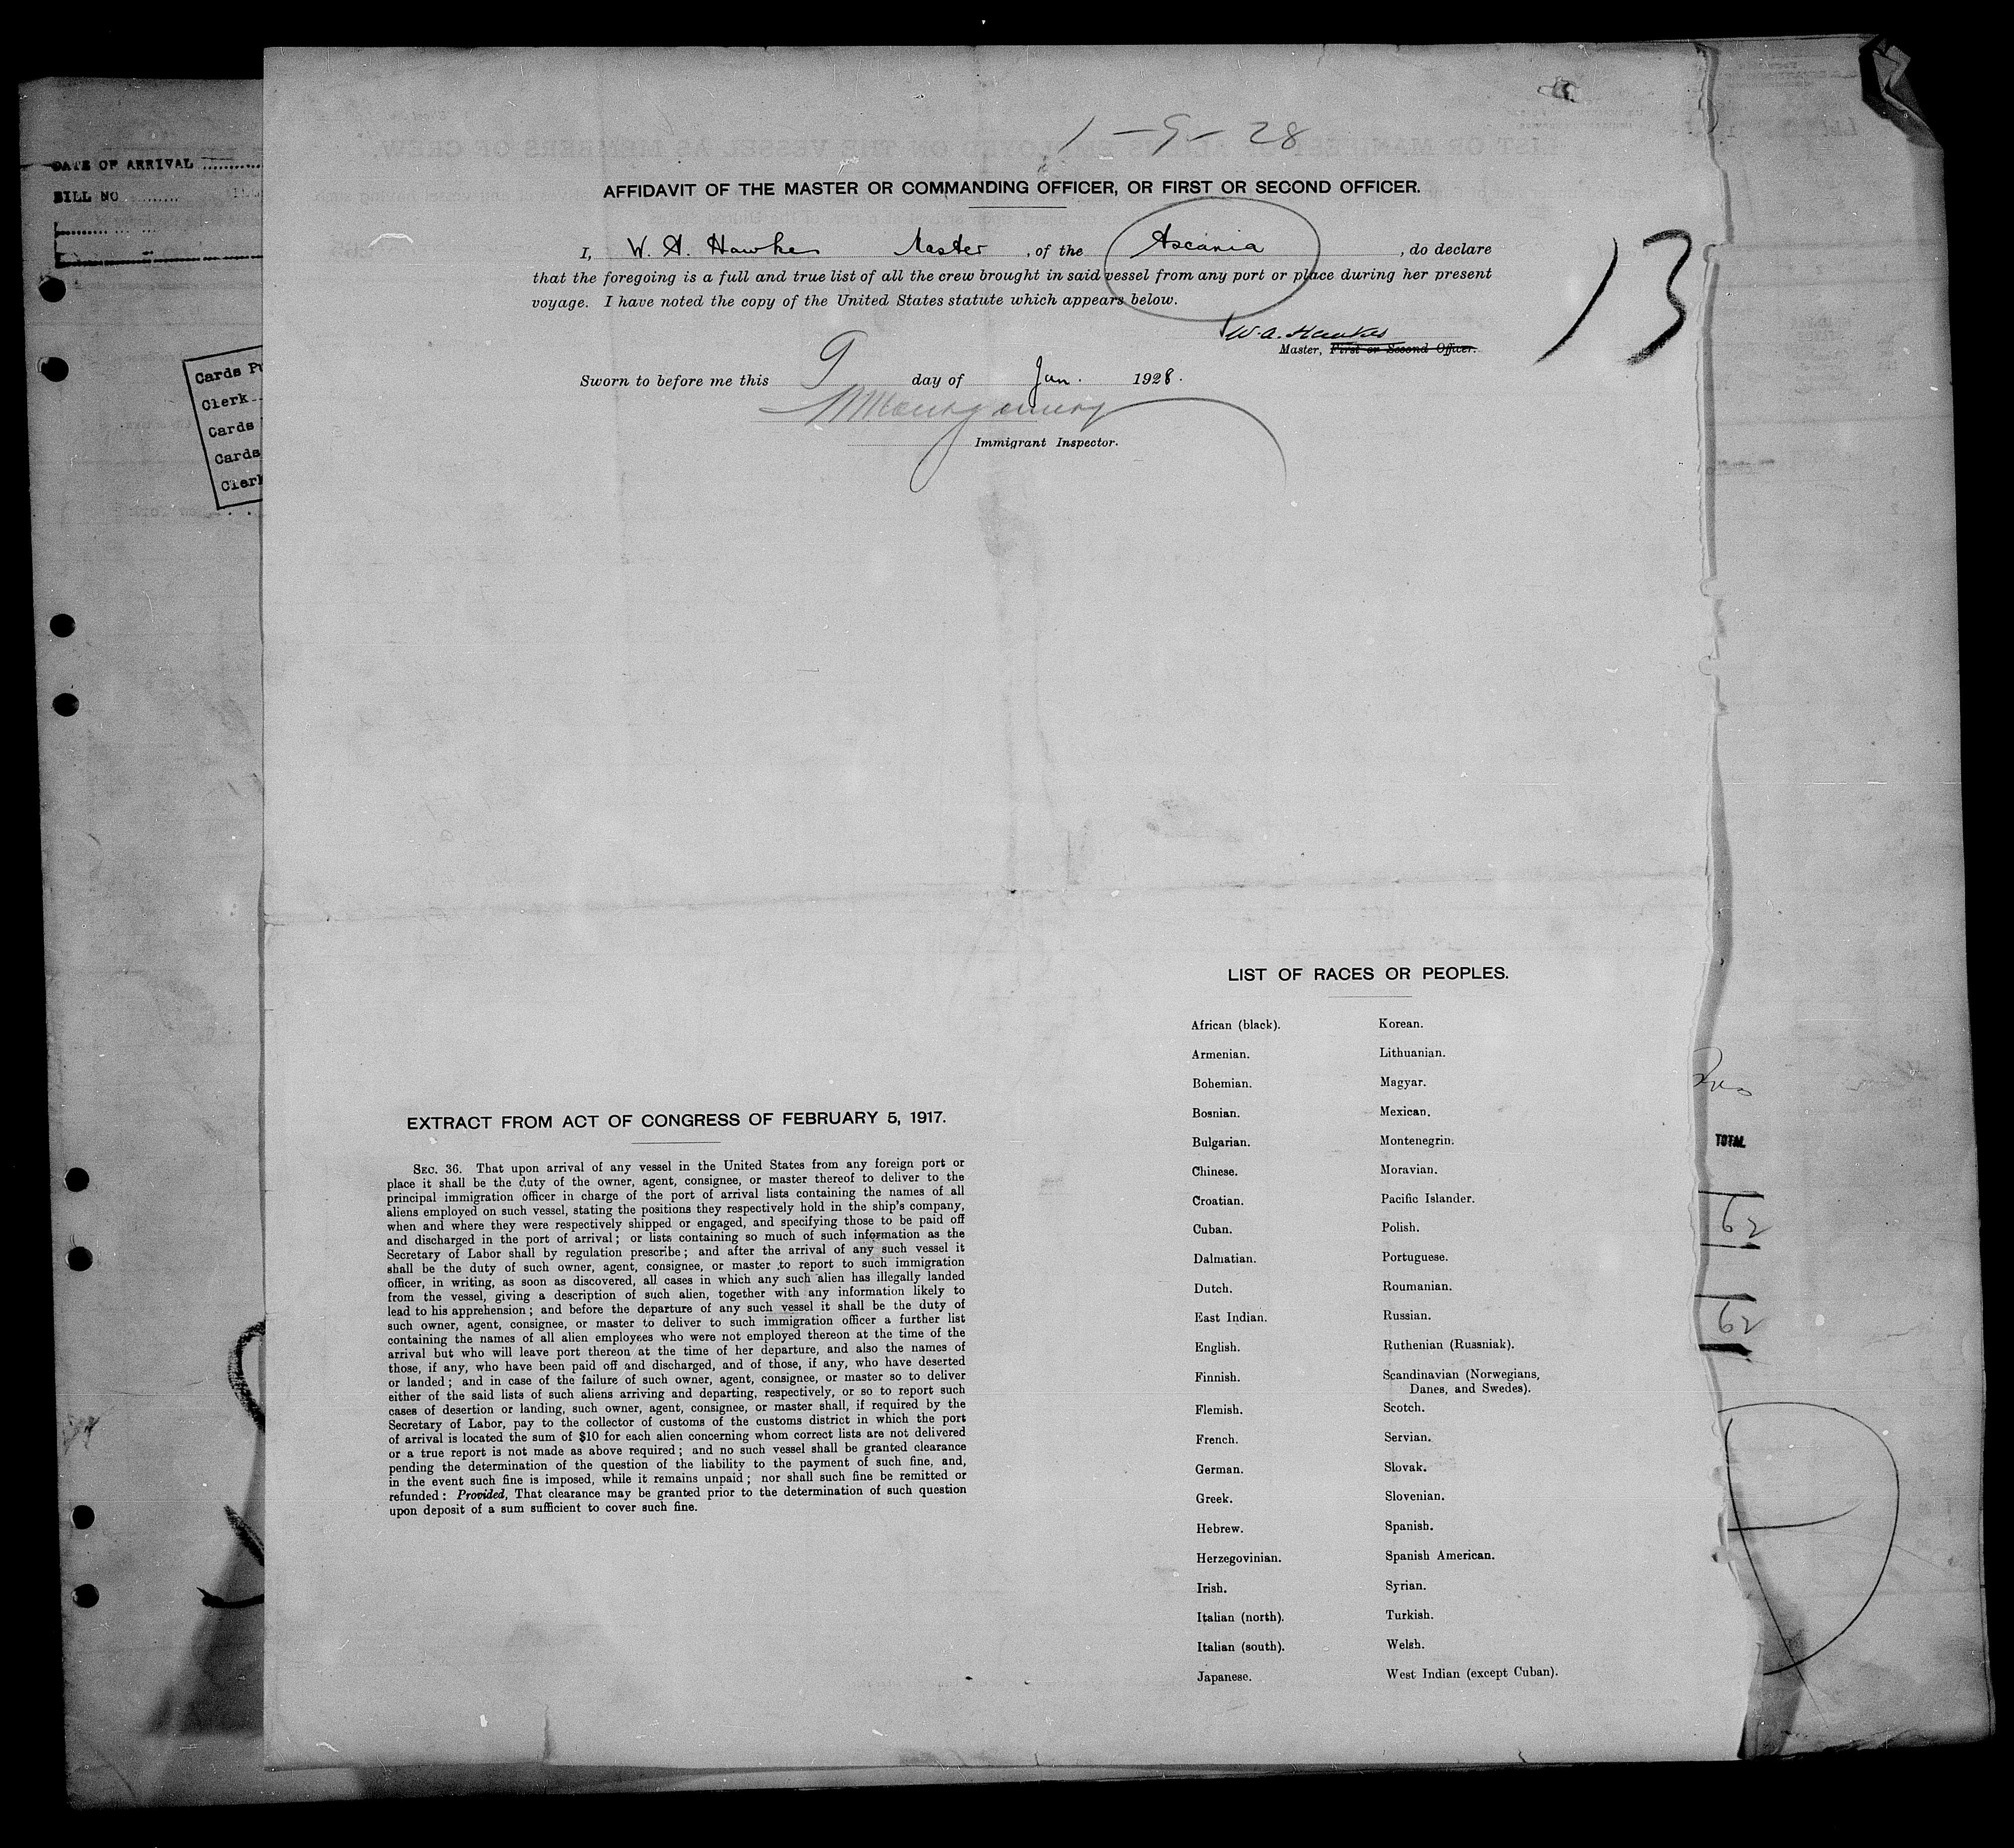 1-9-28
AFFIDAVIT OF THE MASTER OR COMMANDING OFFICER, OR FIRST OR SECOND OFFICER.
I, W. A. Hawkes Master, of the Ascania, do declare
that the foregoing is a full and true list of all the crew brought in said vessel from any port or place during her present
voyage. I have noted the copy of the United States statute which appears below.
13
W. A. Hawkes
Master, First or Second Officer.
Sworn to before me this 9 day of Jan. 1928.
Montgomery
Immigrant Inspector.
DATE OF ARRIVAL
BILL NO
Cards
Clerk
Cards
Cards
Clerk
EXTRACT FROM ACT OF CONGRESS OF FEBRUARY 5, 1917.
SEC. 36. That upon arrival of any vessel in the United States from any foreign port or
place it shall be the duty of the owner, agent, consignee, or master thereof to deliver to the
principal immigration officer in charge of the port of arrival lists containing the names of all
aliens employed on such vessel, stating the positions they respectively hold in the ship's company,
when and where they were respectively shipped or engaged, and specifying those to be paid off
and discharged in the port of arrival; or lists containing so much of such information as the
Secretary of Labor shall by regulation prescribe; and after the arrival of any such vessel it
shall be the duty of such owner, agent, consignee, or master to report to such immigration
officer, in writing, as soon as discovered, all cases in which any such alien has illegally landed
from the vessel, giving a description of such alien, together with any information likely to
lead to his apprehension; and before the departure of any such vessel it shall be the duty of
such owner, agent, consignee, or master to deliver to such immigration officer a further list
containing the names of all alien employees who were not employed thereon at the time of the
arrival but who will leave port thereon at the time of her departure, and also the names of
those, if any, who have been paid off and discharged, and of those, if any, who have deserted
or landed; and in case of the failure of such owner, agent, consignee, or master so to deliver
either of the said lists of such aliens arriving and departing, respectively, or so to report such
cases of desertion or landing, such owner, agent, consignee, or master shall, if required by the
Secretary of Labor, pay to the collector of customs of the customs district in which the port
of arrival is located the sum of $10 for each alien concerning whom correct lists are not delivered
or a true report is not made as above required; and no such vessel shall be granted clearance
pending the determination of the question of the liability to the payment of such fine, and,
in the event such fine is imposed, while it remains unpaid; nor shall such fine be remitted or
refunded: Provided, That clearance may be granted prior to the determination of such question
upon deposit of a sum sufficient to cover such fine.
LIST OF RACES OR PEOPLES.
African (black).
Armenian.
Bohemian.
Bosnian.
Bulgarian.
Chinese.
Croatian.
Cuban.
Dalmatian.
Dutch.
East Indian.
English.
Finnish.
Flemish.
French.
German.
Greek.
Hebrew.
Herzegovinian.
Irish.
Italian (north).
Italian (south).
Japanese.
Korean.
Lithuanian.
Magyar.
Mexican.
Montenegrin.
Moravian.
Pacific Islander.
Polish.
Portuguese.
Roumanian.
Russian.
Ruthenian (Russniak).
Scandinavian (Norwegians,
Danes, and Swedes).
Scotch.
Servian.
Slovak.
Slovenian.
Spanish.
Spanish American.
Syrian.
Turkish.
Welsh.
West Indian (except Cuban).
TOTAL
62
62